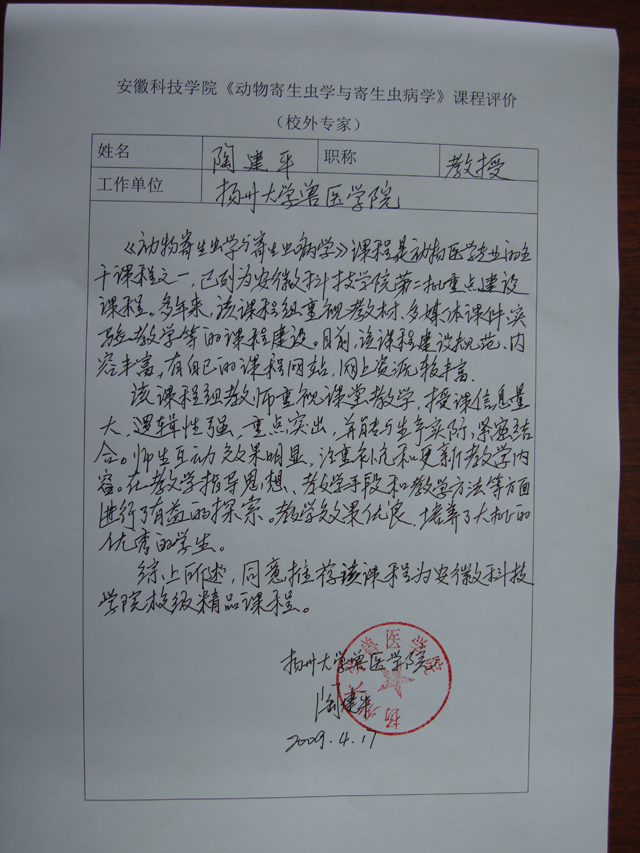 安徽科技学院《动物寄生虫学与寄生虫病学》课程评价
（校外专家）
姓名 陶建平 职称 教授
工作单位 扬州大学兽医学院
《动物寄生虫学与寄生虫病学》课程是动物医学专业的主
干课程之一，已列为安徽科技学院第二批重点建设
课程。多年来，该课程组重视教材、多媒体课件、实
验教学等的课程建设。目前，该课程建设规范、内
容丰富，有自己的课程网站，网上资源较丰富。
该课程组教师重视课堂教学，授课信息量
大，逻辑性强，重点突出，并能与生产实际紧密结
合。师生互动效果明显，注重补充和更新教学内
容。在教学指导思想、教学手段和教学方法等方面
进行了有益的探索。教学效果优良，培养了大批的
优秀的学生。
综上所述，同意推荐该课程为安徽科技
学院校级精品课程。
扬州大学兽医学院
陶建平
2009.4.17
扬州大学兽医学院